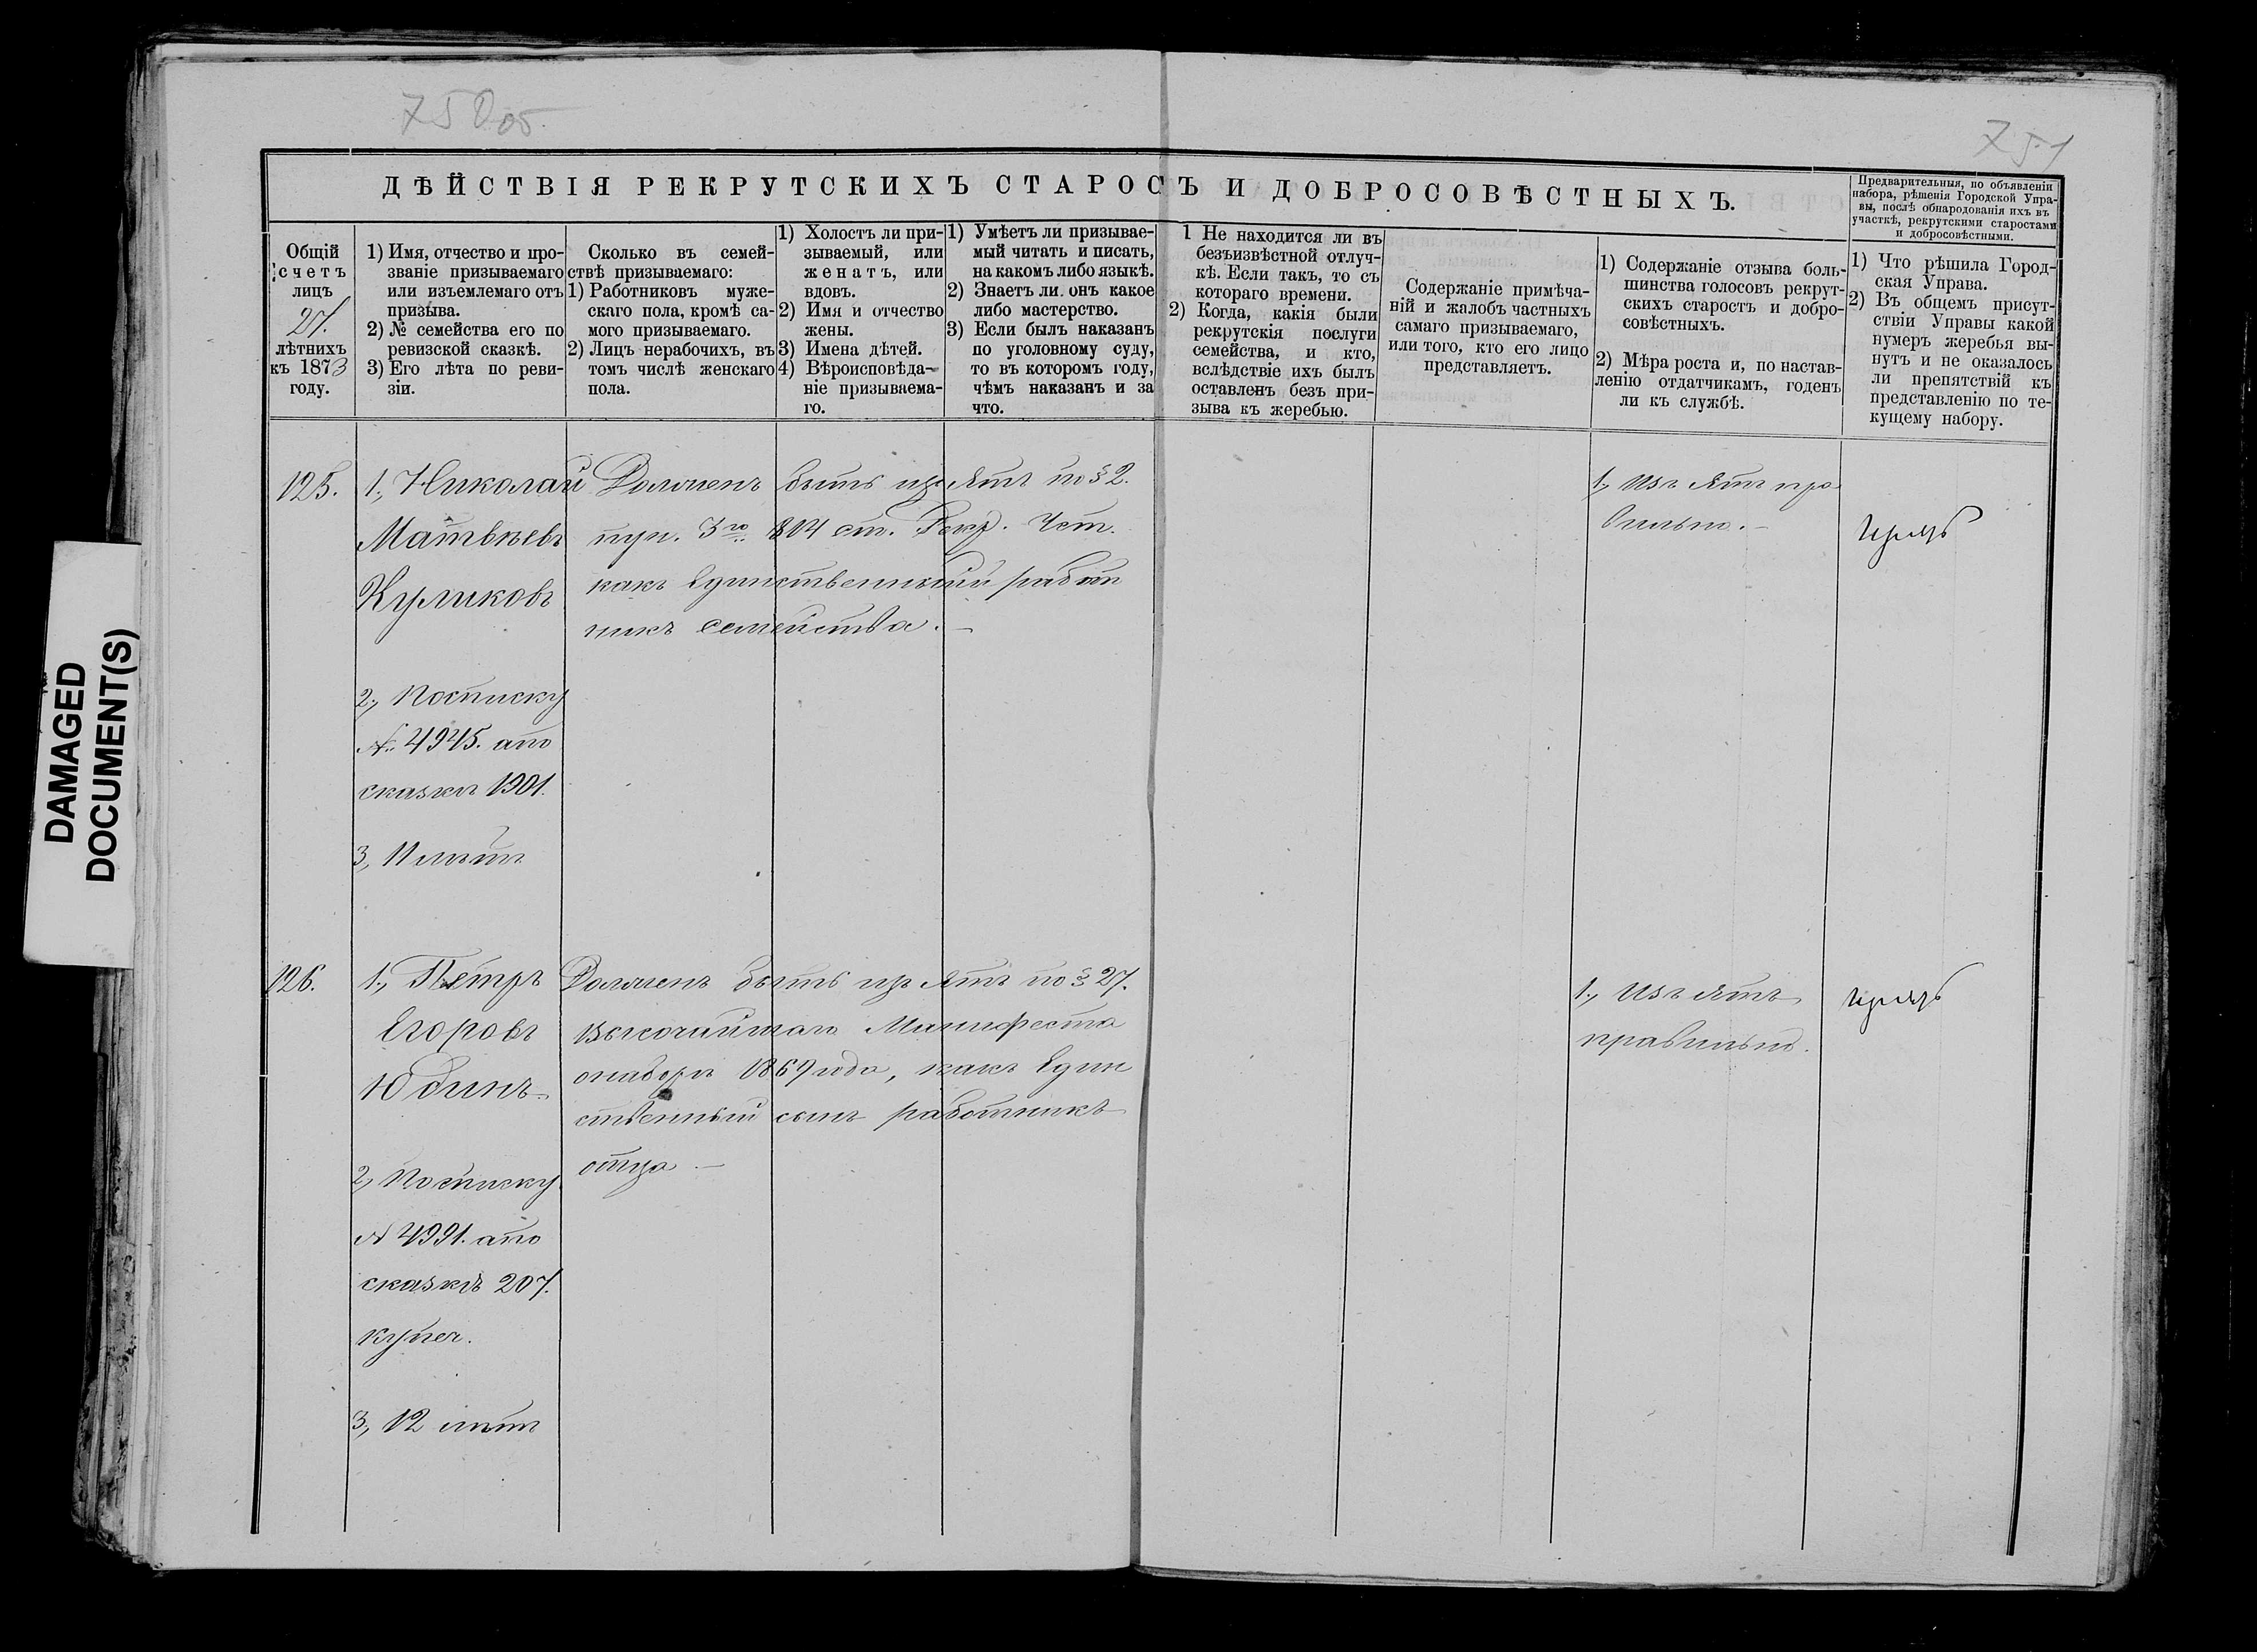 750об.
751
ДѢЙСТВІЯ РЕКРУТСКИХЪ СТАРОСЪ И ДОБРОСОВѢСТНЫХЪ.
Предварительныя, по объявленіи
набора, рѣшенія Городской Упра-
вы, послѣ обнародованія ихъ въ
участкѣ, рекрутскими старостами
и добросовѣстными.
Общій
счетъ
лицъ
27.
лѣтнихъ
къ 1873
году.
1) Имя, отчество и про-
званіе призываемаго
или изъемлемаго отъ
призыва.
2) № семейства его по
ревизской сказкѣ.
3) Его лѣта по реви-
зіи.
Сколько въ семей-
ствѣ призываемаго:
1) Работниковъ муже-
скаго пола, кромѣ са-
мого призываемаго.
2) Лицъ нерабочихъ, въ
томъ числѣ женскаго
пола.
1) Холостъ ли при-
зываемый, или
женатъ, или
вдовъ.
2) Имя и отчество
жены.
3) Имена дѣтей.
4) Вѣроисповѣда-
ніе призываема-
го.
1) Умѣетъ ли призывае-
мый читать и писать,
на какомъ либо языкѣ.
2) Знаетъ ли онъ какое
либо мастерство.
3) Если былъ наказанъ
по уголовному суду,
то въ которомъ году,
чѣмъ наказанъ и за
что.
1 Не находится ли въ
безъизвѣстной отлуч-
кѣ. Если такъ, то съ
котораго времени.
2) Когда, какія были
рекрутскія послуги
семейства, и кто,
вслѣдствіе ихъ былъ
оставленъ безъ при-
зыва къ жеребью.
Содержаніе примѣча-
ній и жалобъ частныхъ
самаго призываемаго,
или того, кто его лицо
представляетъ.
1) Содержаніе отзыва боль-
шинства голосовъ рекрут-
скихъ старостъ и добро-
совѣстныхъ.
2) Мѣра роста и, по настав-
ленію отдатчикамъ, годенъ
ли къ службѣ.
1) Что рѣшила Город-
ская Управа.
2) Въ общемъ присут-
ствіи Управы какой
нумеръ жеребья вы-
нутъ и не оказалось
ли препятствій къ
представленію по те-
кущему набору.
125.
1., Николай
Матвѣевъ
Куликовъ
2., Посписку
№ 4945. апо
сказкѣ 1901.
3, 11 лѣтъ
Долженъ быть изъятъ по § 2.
пун. 3го 814 ст. Рекр. Уст.
какъ Единственный работ
никъ семейства. —
1., Изъятъ пра
вильно. —
126.
1., Петръ
Егоровъ
Юдинъ
2, Посписку
№ 4991. апо
сказкѣ 207.
купеч.
3., 12 лѣтъ
Долженъ быть изъятъ по § 27.
Высочайшаго Манифеста
онаборѣ 1869 года, какъ Един
ственный сынъ работникъ
отца. —
1., Изъятъ
правильно.
DAMAGED
DOCUMENT(S)